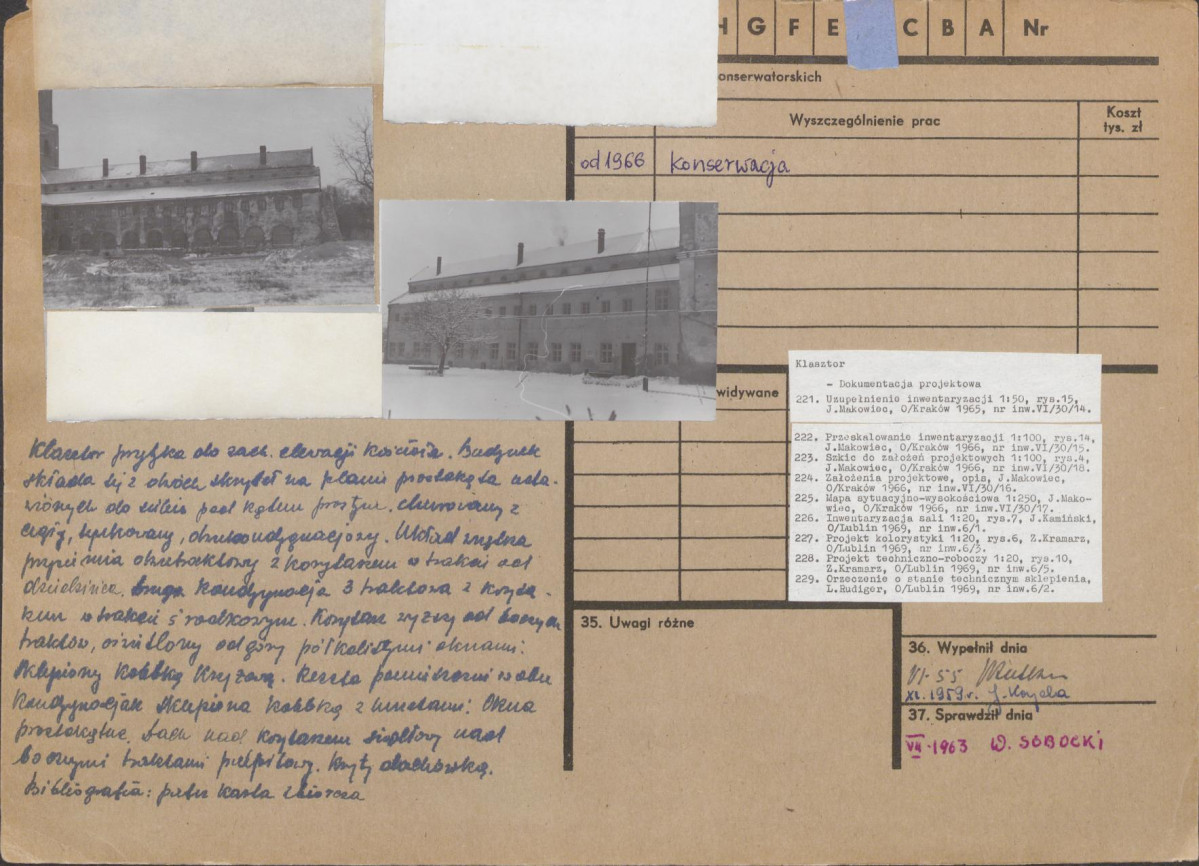 H G F E C B A Nr
onserwatorskich
Wyszczególnienie prac
Koszt
tys. zł
od 1966 Konserwacja
Klasztor
- Dokumentacja projektowa
221. Uzupełnienie inwentaryzacji 1:50, rys.15,
J.Makowiec, O/Kraków 1965, nr inw.VI/30/14.
widywane
222. Przeskalowanie inwentaryzacji 1:100, rys.14,
J.Makowiec, O/Kraków 1966, nr inw.VI/30/15.
223. Szkic do założeń projektowych 1:100, rys.4,
J.Makowiec, O/Kraków 1966, nr inw.VI/30/18.
224. Założenia projektowe, opis, J.Makowiec,
O/Kraków 1966, nr inw.VI/30/16.
225. Mapa sytuacyjno-wysokościowa 1:250, J.Mako-
wiec, O/Kraków 1966, nr inw.VI/30/17.
226. Inwentaryzacja sali 1:20, rys.7, J.Kamiński,
O/Lublin 1969, nr inw.6/1.
227. Projekt kolorystyki 1:20, rys.6, Z.Kramarz,
O/Lublin 1969, nr inw.6/3.
228. Projekt techniczno-roboczy 1:20, rys.10,
Z.Kramarz, O/Lublin 1969, nr inw.6/5.
229. Orzeczenie o stanie technicznym sklepienia,
L.Rudiger, O/Lublin 1969, nr inw.6/2.
Klasztor przytyka do zach. elewacji kościoła. Budynek
składa się z dwóch skrzydeł na planie prostokąta usta-
wionych do siebie pod kątem prostym. Murowany z
cegły, tynkowany, dwukondygnacjowy. Układ wnętrza
przyziemia dwutraktowy z korytarzem w trakcie od
dziedzińca, druga kondygnacja 3 traktowa z koryta-
rzem w trakcie środkowym. Korytarz wyższy od bocznych
traktów, oświetlony od góry półkolistymi oknami.
Sklepiony kolebką krzyżową. Reszta pomieszczeń w obu
kondygnacjach sklepiona kolebką z lunetami. Okna
prostokątne. Dach nad korytarzem siodłowy nad
bocznymi traktami pulpitowy. Kryty dachówką.
Bibliografia: patrz karta zbiorcza
35. Uwagi różne
36. Wypełnił dnia
VI-55
XI.1959 r. J. Kozela
37. Sprawdził dnia
VII-1963 W. SOBOCKI